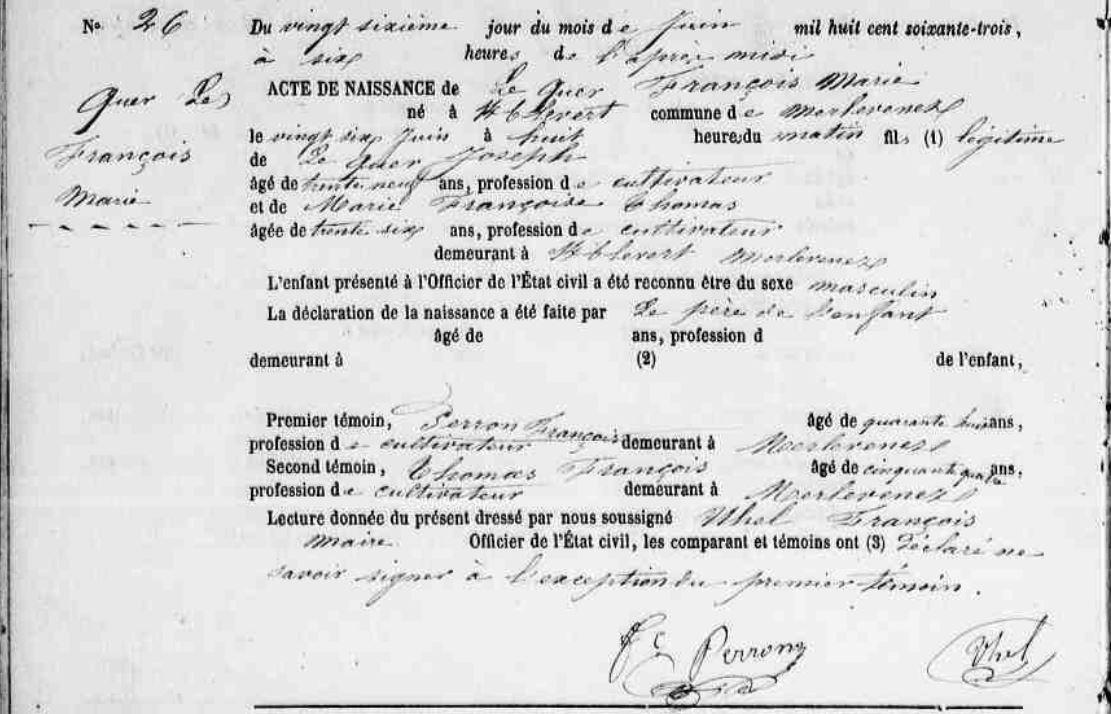 No 26
Du vingt sixième jour du mois de Juin mil huit cent soixante-trois,
à six heures de l'après midi
Quer Le
François
Marie
ACTE DE NAISSANCE de Le Quer François Marie
né à commune de Merlevenez
le vingt six Juin à huit heures du matin fils (1) légitime
de Le Quer Joseph
âgé de trente neuf ans, profession de cultivateur
et de Marie Françoise Thomas
âgée de trente six ans, profession de cultivateur
demeurant à Merlevenez
L'enfant présenté à l'Officier de l'État civil a été reconnu être du sexe masculin
La déclaration de la naissance a été faite par Le père de l'enfant
âgé de ans, profession d
demeurant à (2) de l'enfant,
Premier témoin, Perron François âgé de quarante ans,
profession de cultivateur demeurant à Merlevenez
Second témoin, Thomas François âgé de cinquante quatre ans,
profession de cultivateur demeurant à Merlevenez
Lecture donnée du présent dressé par nous soussigné Uhel François
Maire Officier de l'État civil, les comparant et témoins ont (3) déclaré ne
savoir signer à l'exception du premier témoin.
Fs Perron
Uhel